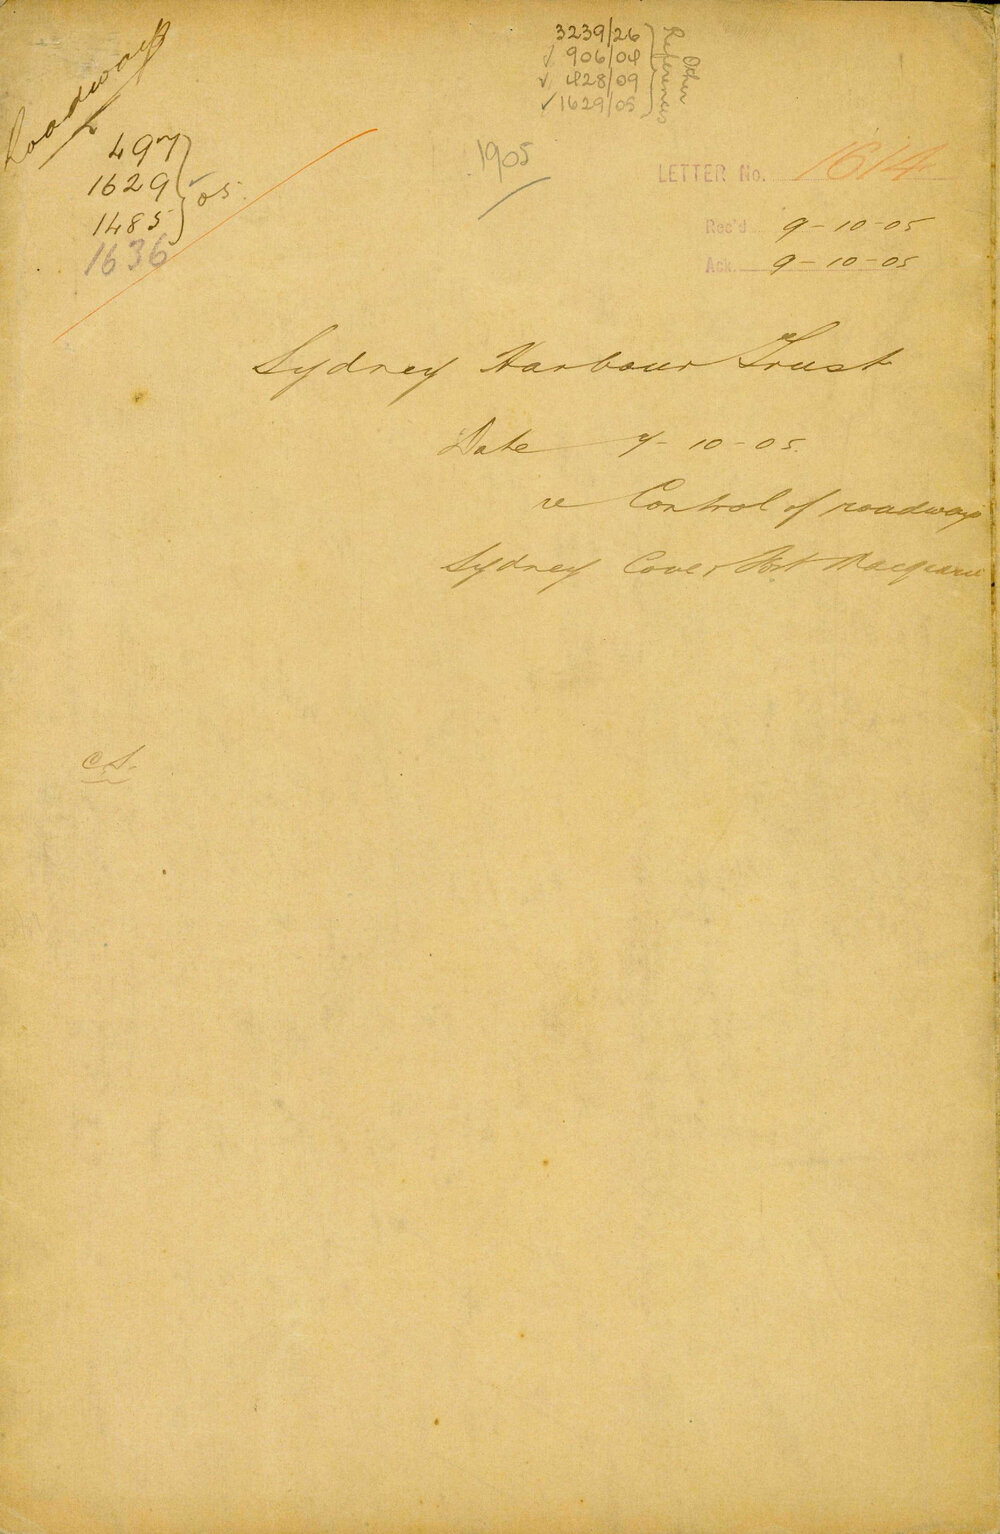 Roadways
497
1629
1485
} 05.
1636
3239/26
✓ 906/04
✓ 428/09
✓ 1629/05
Other
References
1905
LETTER No. 1614
Rec'd 9-10-05
Ack. 9-10-05
Sydney Harbour Trust
Date 7-10-05.
re Control of roadways
Sydney Cove & Fort Macquarie
C.S.